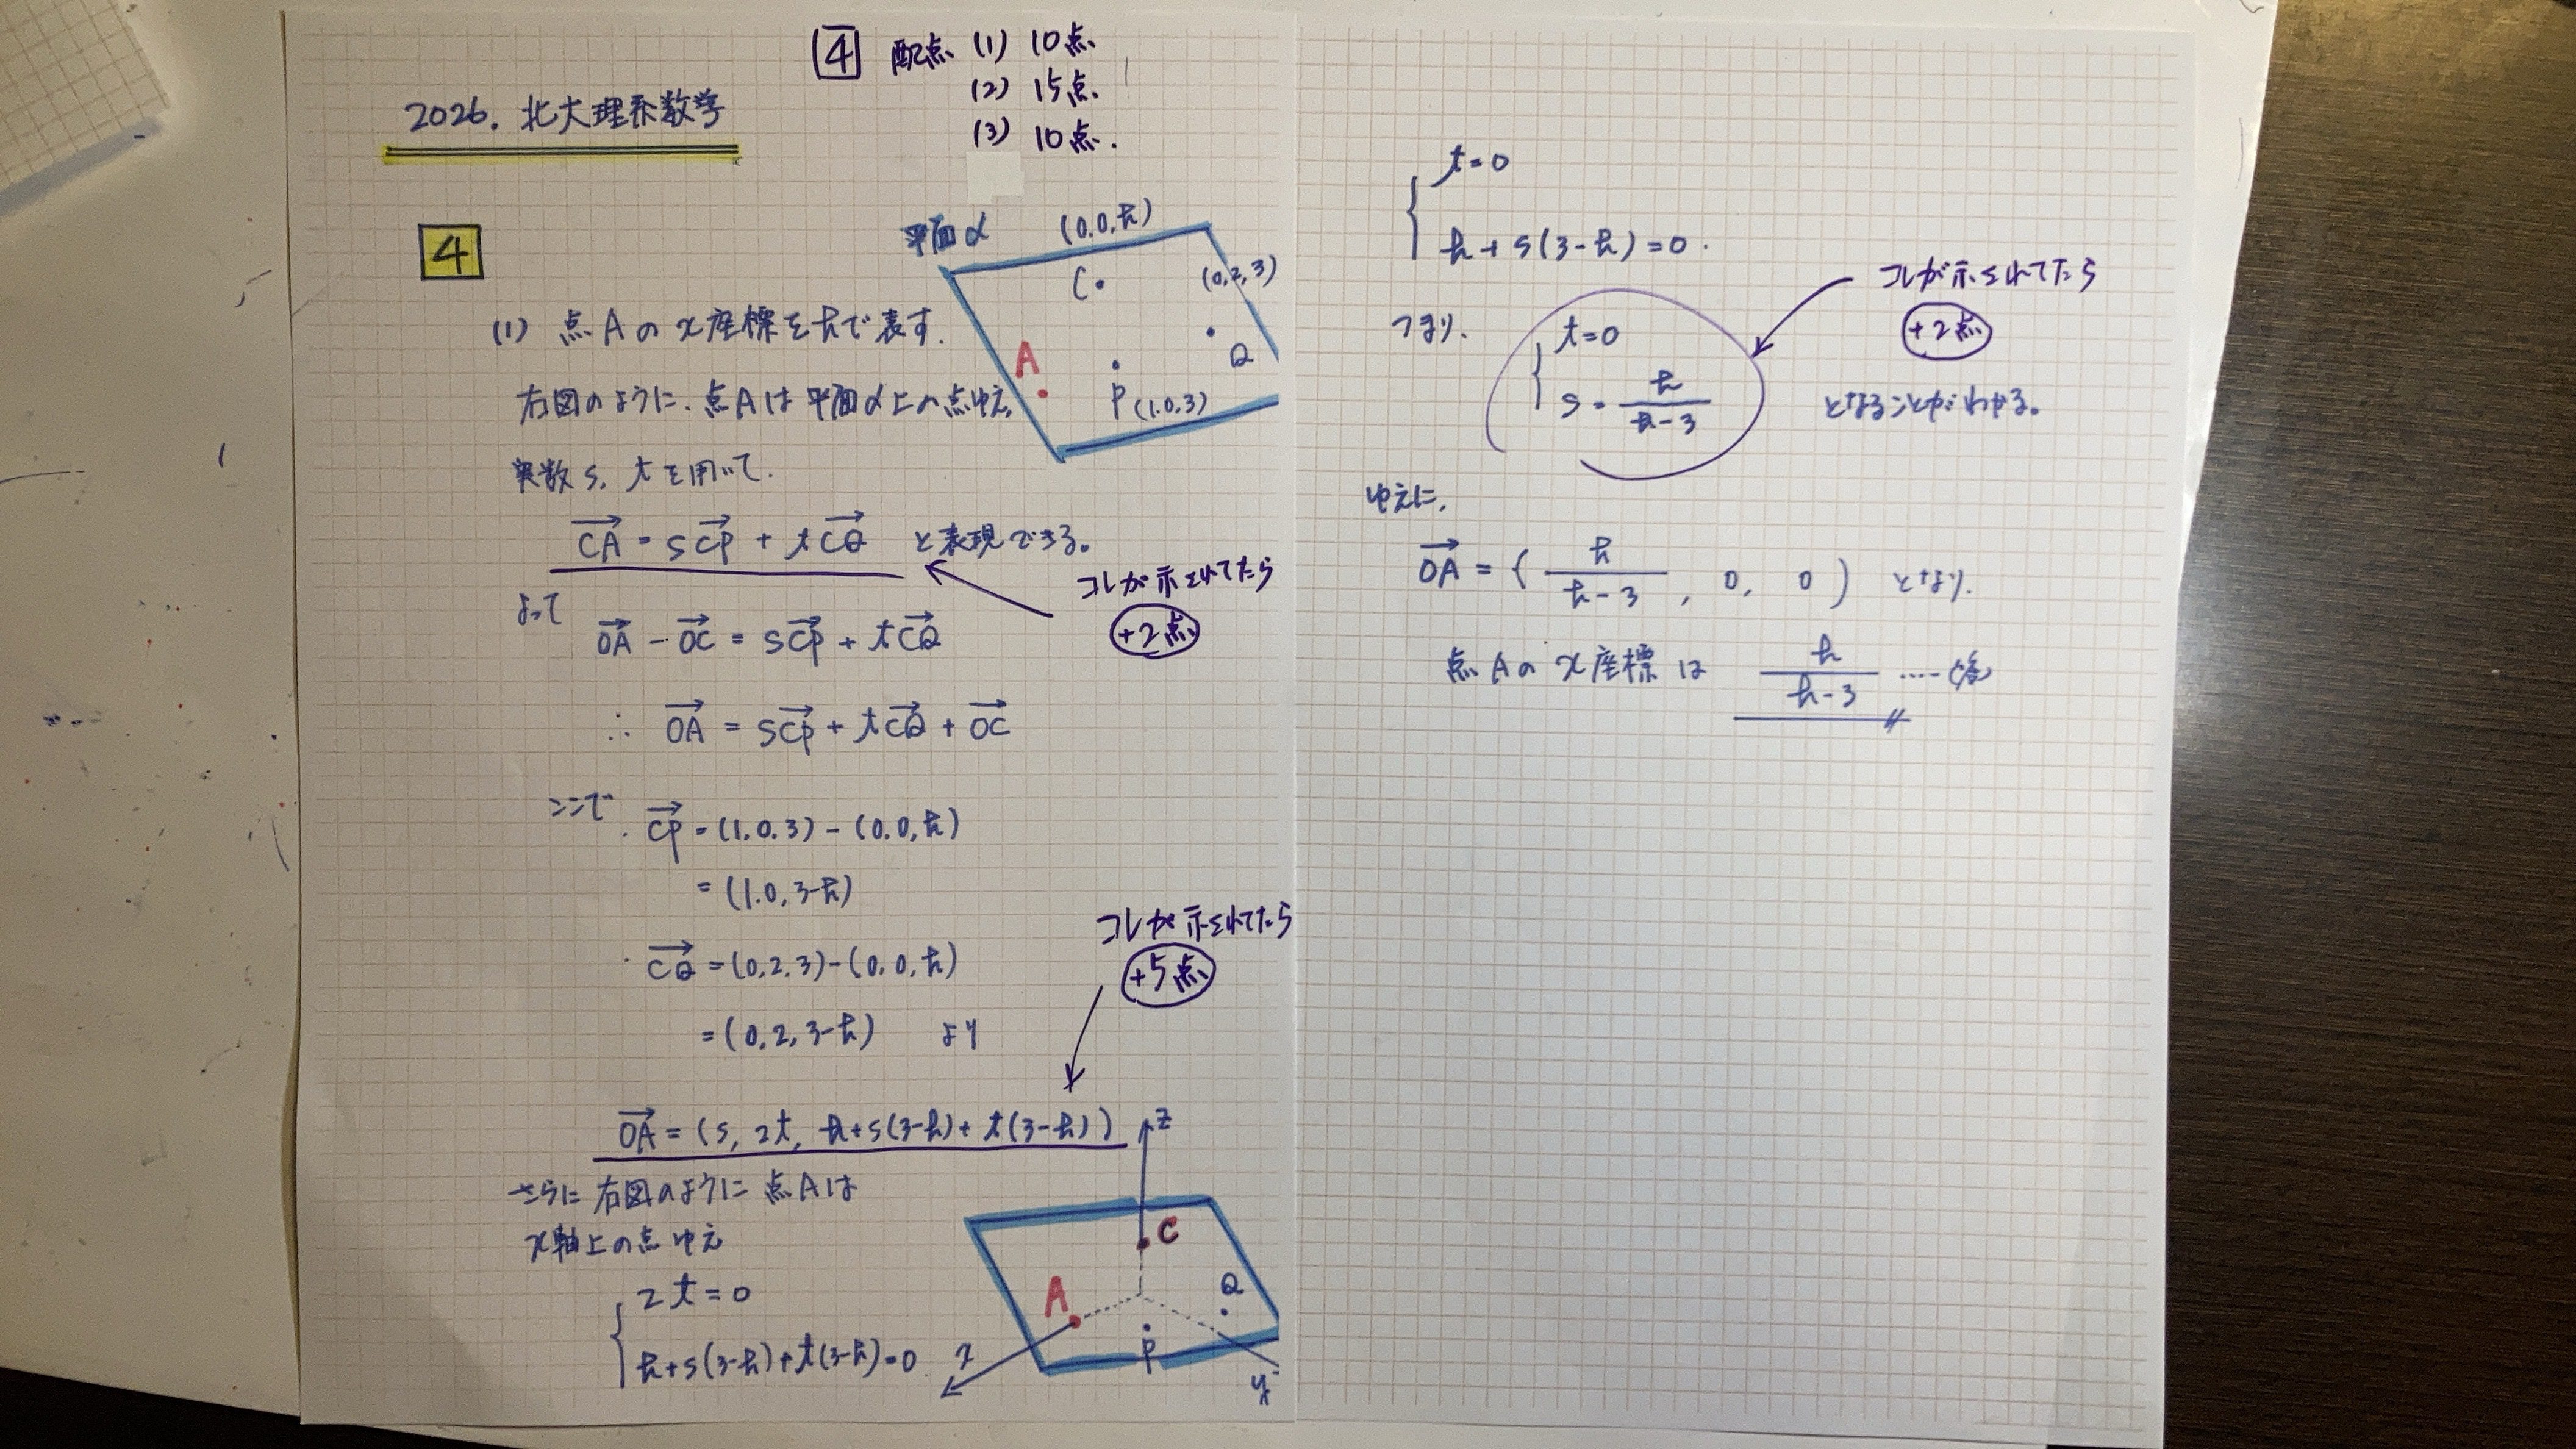 4 配点 (1) 10点
(2) 15点
(3) 10点.
2026. 北大理系数学
4
平面α
(0.0,h)
C
(0,2,3)
A
P(1.0.3)
Q
(1) 点Aのx座標をhで表す.
右図のように、点Aは平面α上の点ゆえ
実数s, tを用いて.
CA = sCP + tCQ と表現できる。
コレが示されてたら
+2点
よって
OA - OC = sCP + tCQ
∴ OA = sCP + tCQ + OC
ここで
・CP = (1.0.3) - (0.0,h)
= (1.0,3-h)
・CQ = (0,2.3) - (0.0,h)
= (0,2,3-h) より
コレが示されてたら
+5点
OA = (s, 2t, h+s(3-h)+t(3-h))
さらに右図のように点Aは
x軸上の点ゆえ
2t=0
h+s(3-h)+t(3-h)=0.
z
C
A
Q
P
x
y
t=0
h+s(3-h)=0.
コレが示されてたら
+2点
つまり.
t=0
s = h/(h-3)
となることがわかる。
ゆえに,
OA = (h/(h-3), 0, 0) となり.
点Aのx座標は h/(h-3) ....(答)